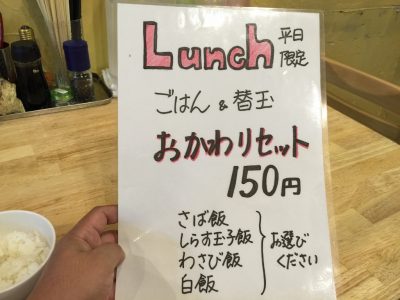 Lunch 平日限定
ごはん & 替玉
おかわりセット
150円
さば飯
しらす玉子飯
わさび飯
白飯
お選びください